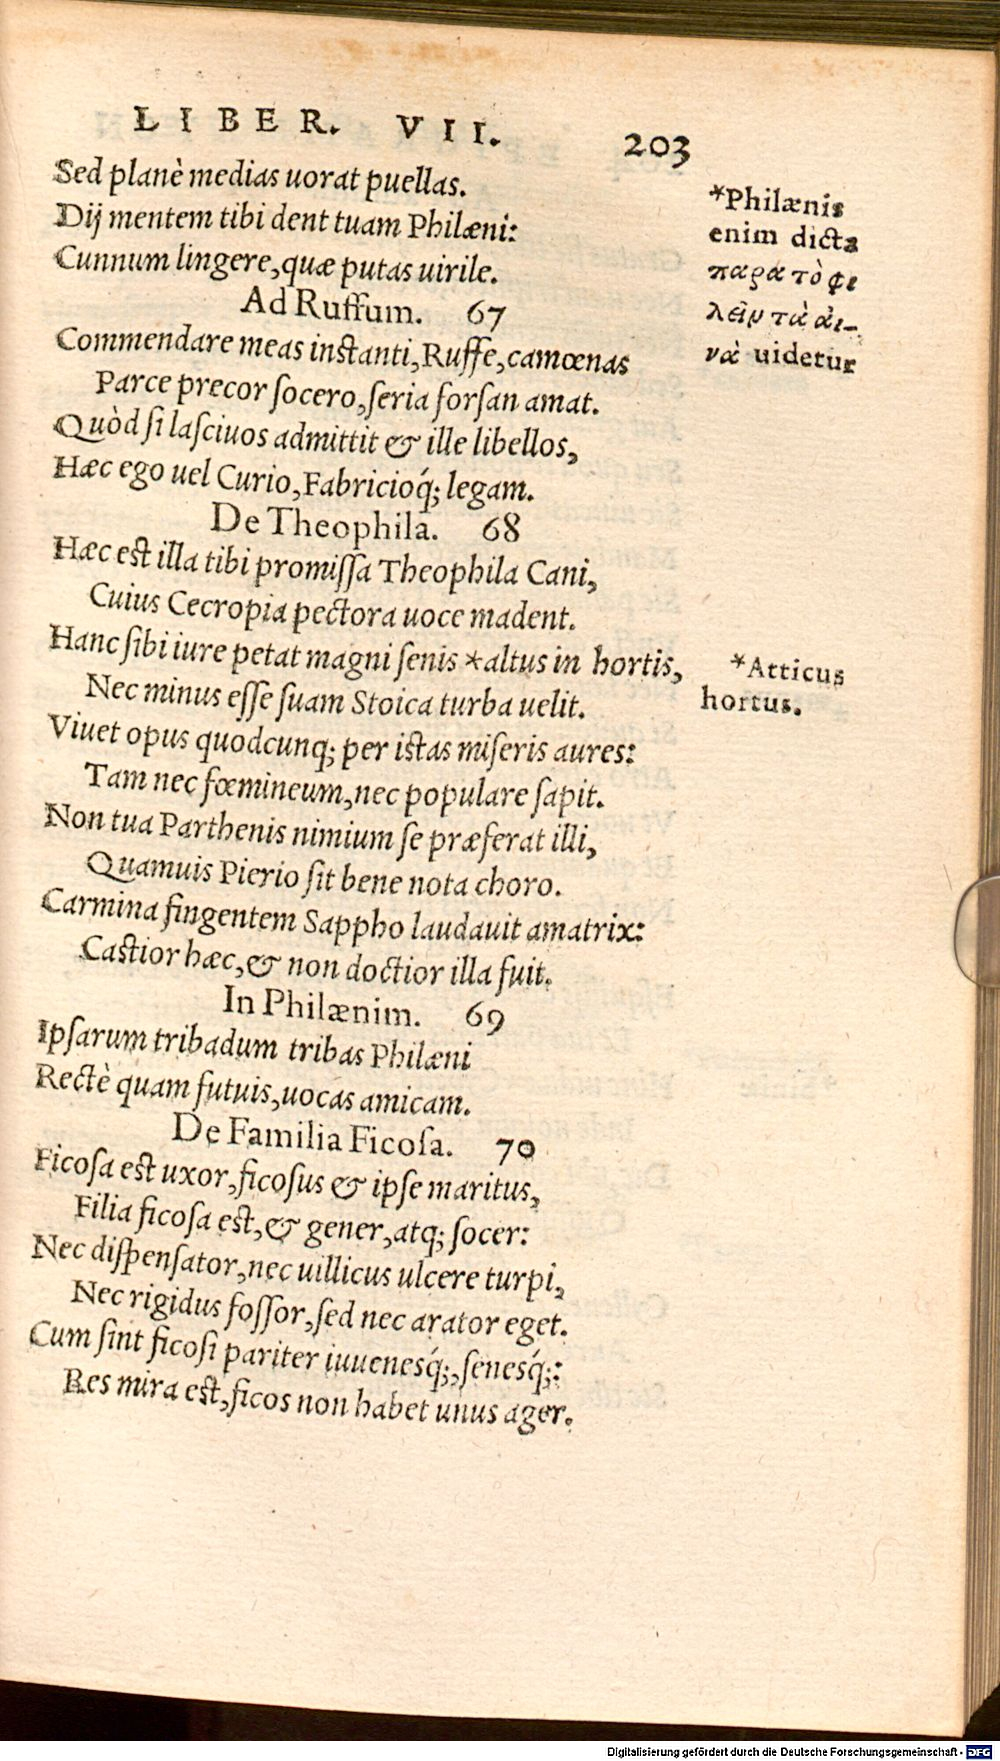 LIBER. VII. 203
Sed planè medias uorat puellas.
Dij mentem tibi dent tuam Philæni:
Cunnum lingere, quæ putas uirile.
*Philænis
enim dicta
παρα τὸ φι
λεῖν τὰ αἰ-
νὰ uidetur
Ad Ruffum. 67
Commendare meas instanti, Ruffe, camœnas
Parce precor ſocero, ſeria forſan amat.
Quòd ſi laſciuos admittit & ille libellos,
Hæc ego uel Curio, Fabricioq́; legam.
De Theophila. 68
Hæc est illa tibi promiſſa Theophila Cani,
Cuius Cecropia pectora uoce madent.
Hanc ſibi iure petat magni ſenis *altus in hortis,
*Atticus
hortus.
Nec minus eſſe ſuam Stoica turba uelit.
Viuet opus quodcunq; per istas miſeris aures:
Tam nec fœmineum, nec populare ſapit.
Non tua Parthenis nimium ſe præferat illi,
Quamuis Pierio ſit bene nota choro.
Carmina fingentem Sappho laudauit amatrix:
Castior hæc, & non doctior illa fuit.
In Philænim. 69
Ipſarum tribadum tribas Philæni
Rectè quam futuis, uocas amicam.
De Familia Ficoſa. 70
Ficoſa est uxor, ficoſus & ipſe maritus,
Filia ficoſa est, & gener, atq; ſocer:
Nec diſpenſator, nec uillicus ulcere turpi,
Nec rigidus foſſor, ſed nec arator eget.
Cum ſint ficoſi pariter iuuenesq́;, ſenesq́;:
Res mira est, ficos non habet unus ager.
Digitalisierung gefördert durch die Deutsche Forschungsgemeinschaft - DFG